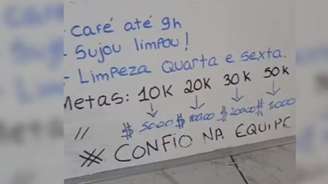 - Café até 9h
- Sujou limpou!
- Limpeza Quarta e sexta.
Metas: 10K 20K 30K 50K
// $ 5000 $ 10000 $ 20000 $
* CONFIO NA EQUIPE